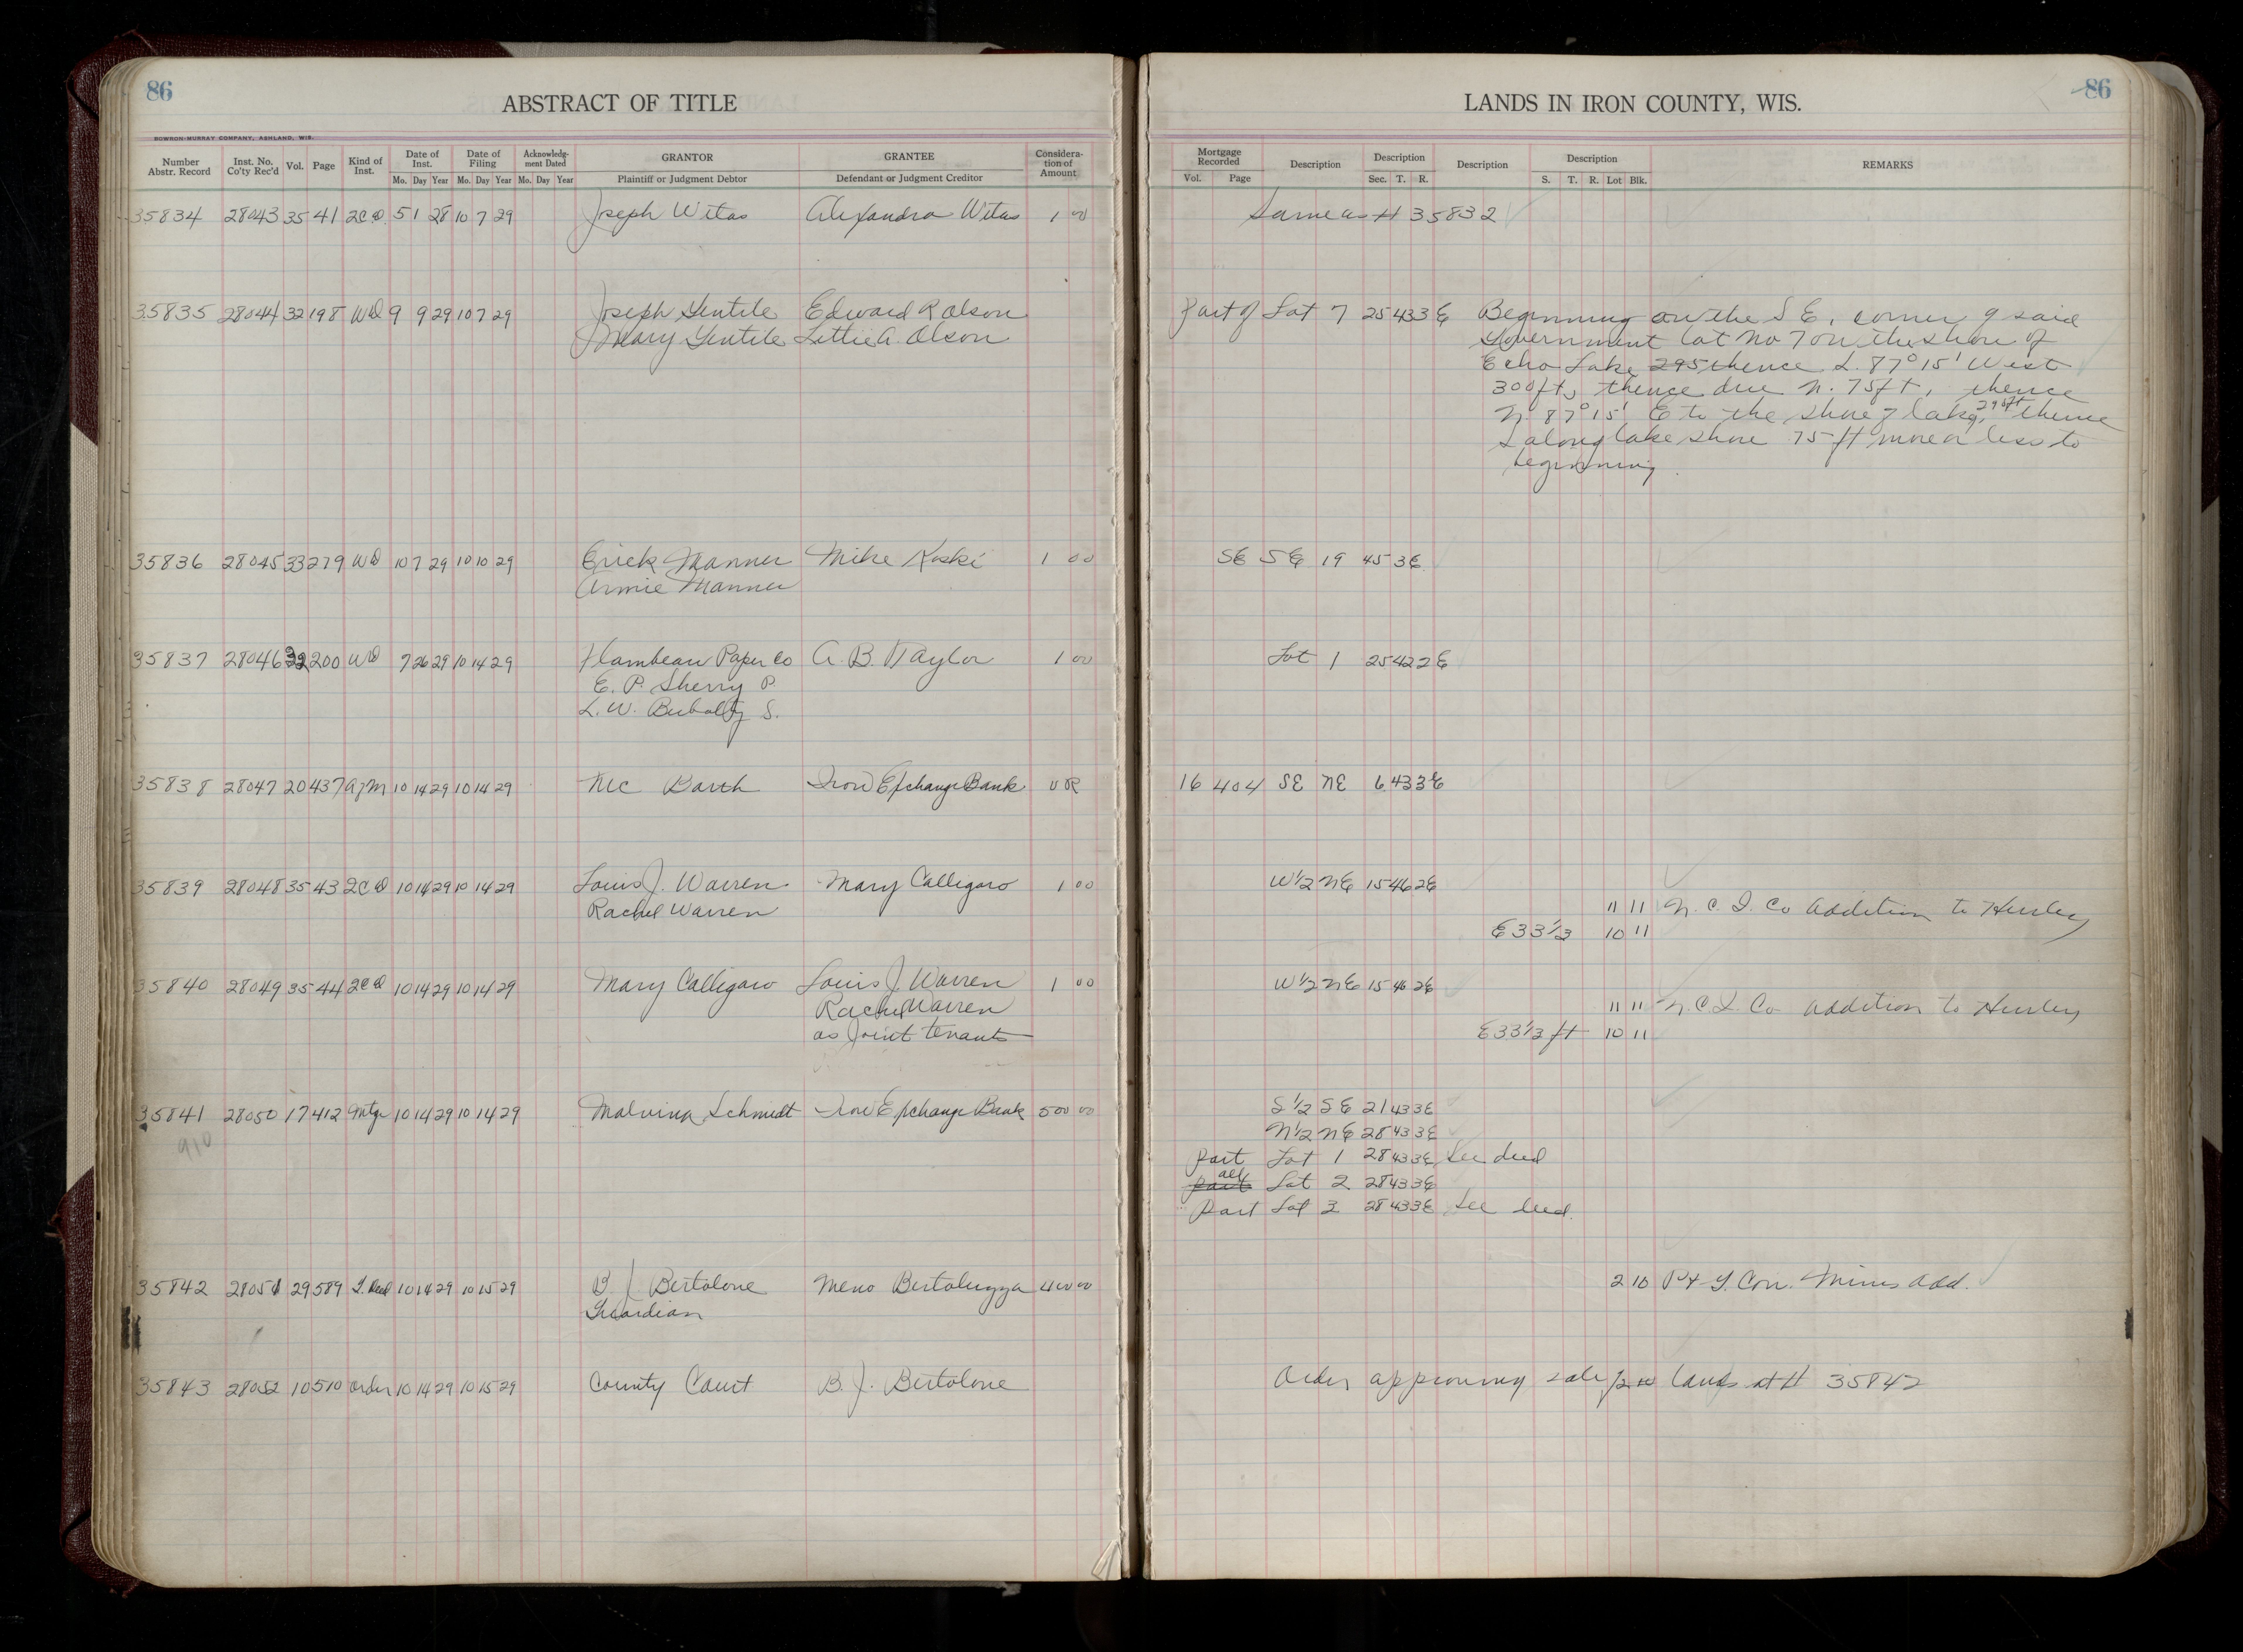 86
ABSTRACT OF TITLE
BOWRON-MURRAY COMPANY, ASHLAND, WIS.
Number Abstr. Record Inst. No. Co'ty Rec'd Vol. Page Kind of Inst. Date of Inst. Mo. Day Year Date of Filing Mo. Day Year Acknowledg-ment Dated Mo. Day Year GRANTOR Plaintiff or Judgment Debtor GRANTEE Defendant or Judgment Creditor Considera-tion of Amount
35834 28043 35 41 2CD 5 1 28 10 7 29 Joseph Witas Alexandra Witas 1 00
35835 28044 32 198 WD 9 9 29 10 7 29 Joseph Gentile Edward R Olson
Mary Gentile Lettie A. Olson
35836 28045 33 279 WD 10 7 29 10 10 29 Erick Manner Mike Koski 1 00
Annie Manner
35837 28046 32 200 WD 7 26 29 10 14 29 Flambeau Paper Co A. B. Taylor 1 00
E. P. Sherry P.
L. W. S.
35838 28047 20 437 10 14 29 10 14 29 Barth Iron Exchange Bank
35839 28048 35 43 2CD 10 14 29 10 14 29 Louis J. Warren Mary Calligaro 1 00
Rachel Warren
35840 28049 35 44 2CD 10 14 29 10 14 29 Mary Calligaro Louis J. Warren 1 00
Rachel Warren
as Joint tenants
35841 28050 17 412 Mtg 10 14 29 10 14 29 Malvina Schmidt Iron Exchange Bank 500 00
910
35842 28051 29 589 10 14 29 10 15 29 B. J. Bertolone Meno Bertoluzza 400 00
Guardian
35843 28052 10 510 Order 10 14 29 10 15 29 County Court B. J. Bertolone
86
LANDS IN IRON COUNTY, WIS.
Mortgage Recorded Vol. Page Description Description Sec. T. R. Description Description S. T. R. Lot Blk. REMARKS
Same as # 35832
Part of Lot 7 25 43 3E Beginning on the S E. corner of said
Government lot No 7 on the shore of
Echo Lake 295 thence S. 87° 15' West
300 ft, thence due N. 75 ft, thence
N. 87° 15' E to the shore of lake, 295 ft thence
S along lake shore 75 ft more or less to
beginning.
SE SE 19 45 3E
Lot 1 25 42 2E
16 404 SE NE 6 43 3E
W 1/2 NE 15 46 2E
11 11 N. C. I. Co Addition to Hurley
E 33 1/3 10 11
W 1/2 NE 15 46 2E
11 11 N. C. I. Co Addition to Hurley
E 33 1/3 ft 10 11
S 1/2 SE 21 43 3E
N 1/2 NE 28 43 3E
part Lot 1 28 43 3E See deed
part all Lot 2 28 43 3E
Part Lot 3 28 43 3E See deed.
2 10 Mines Add.
Order approving sale lands at # 35842